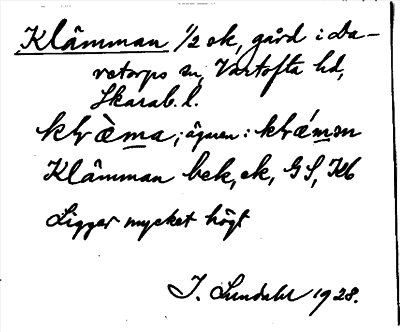 Klämman 1/2 ek, gård i Da-
retorps sn, Vartofta hd,
Skarab. l.
klæ̀ma, ; ägaren : klǽmən
Klämman bek, ek, GS, Kb
Ligger mycket högt
J. Lundahl 1928.